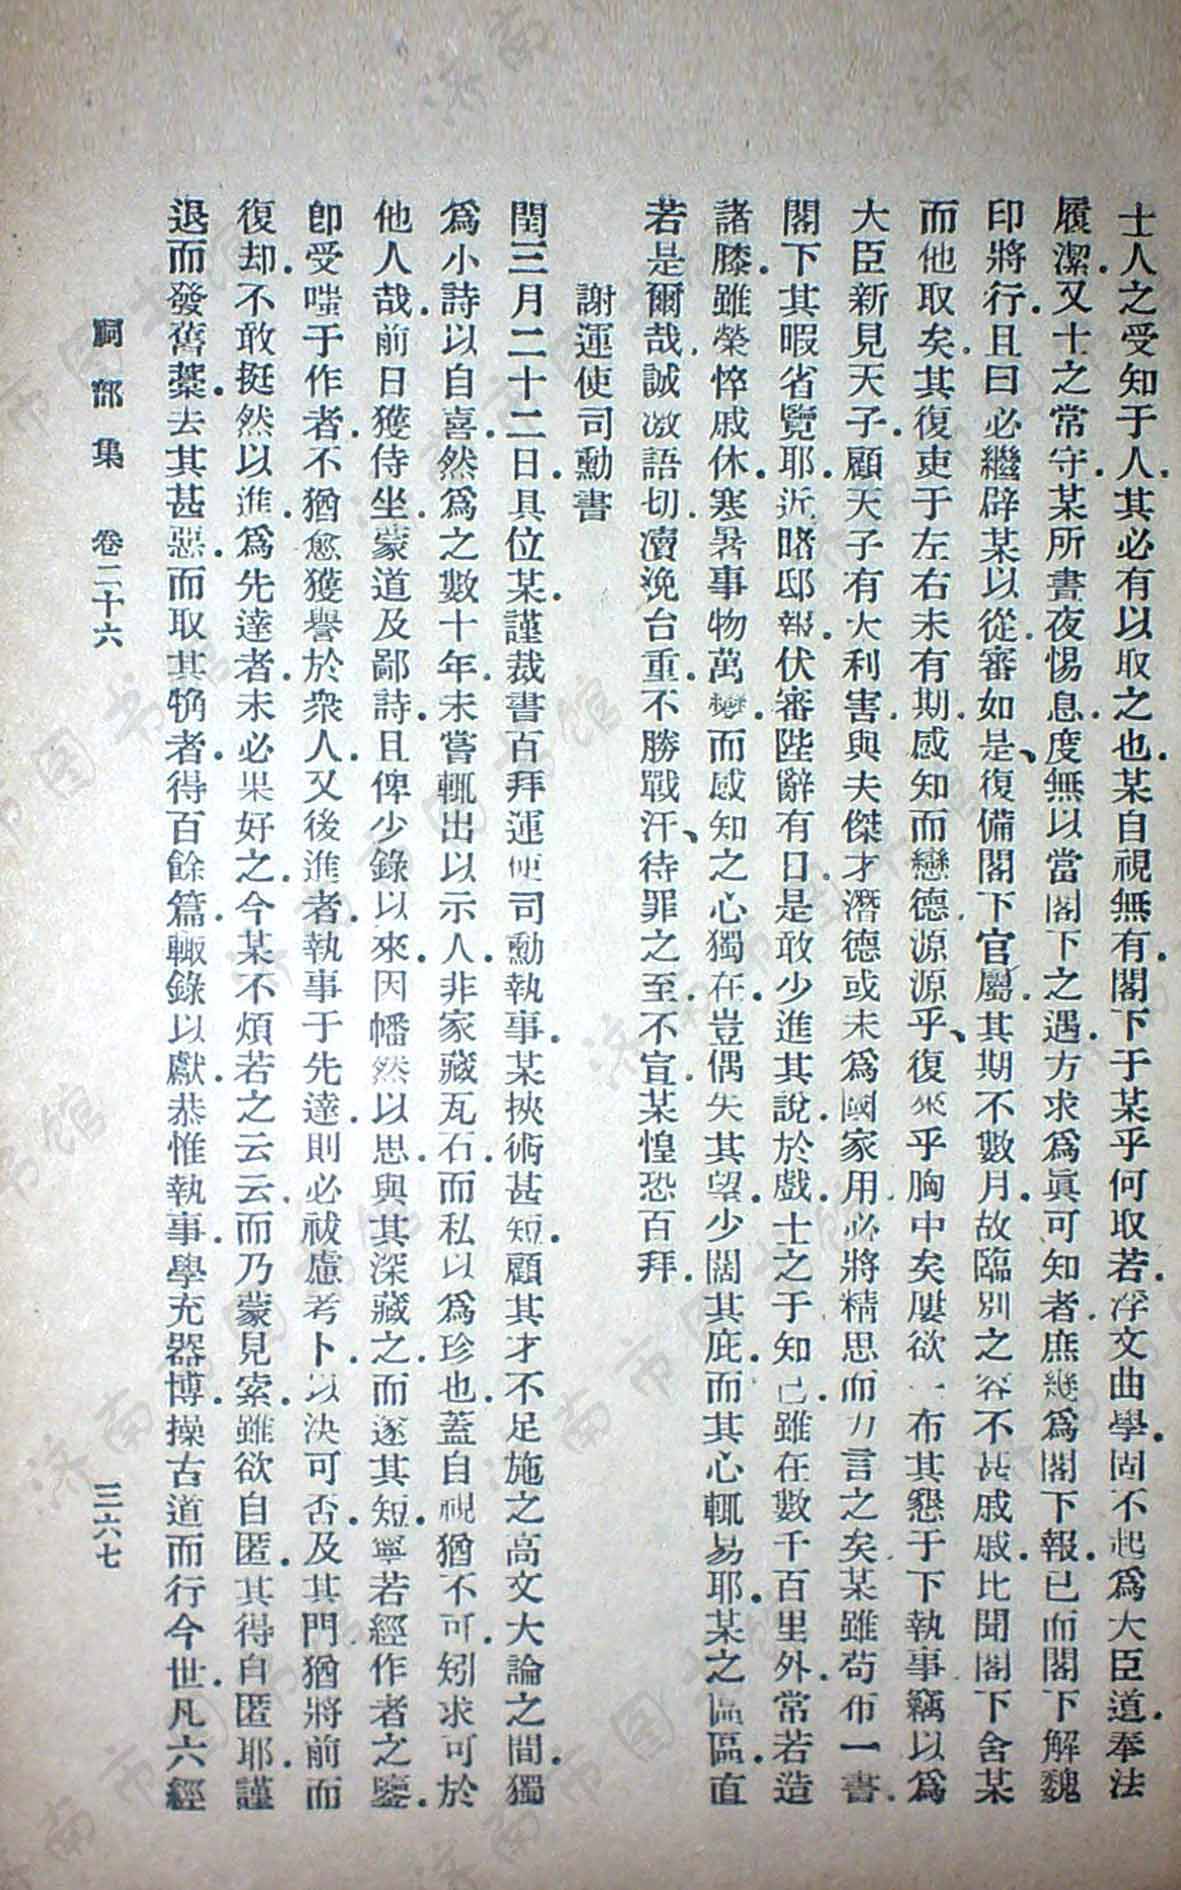 士人之受知于人.其必有以取之也.某自視無有.閣下于某乎何取.若浮文曲學.固不起爲大臣道.奉法
履潔.又士之常守.某所晝夜惕息.度無以當閣下之遇.方求爲眞可知者.庶幾爲閣下報.已而閣下解魏
印將行.且曰必繼辟某以從.審如是、復備閣下官屬.其期不數月.故臨別之容不甚戚戚.比聞閣下舍某
而他取矣.其復吏于左右未有期.感知而戀德.源源乎、復來乎胸中矣.屢欲一布其懇于下執事.竊以爲
大臣新見天子.顧天子有大利害.與夫傑才潛德.或未爲國家用.必將精思而力言之矣.某雖苟布一書.
閣下其暇省覽耶.近睹邸報.伏審陛辭有日.是敢少進其說.於戲.士之于知己.雖在數千百里外.常若造
諸膝.雖榮悴戚休.寒暑事物萬變.而感知之心獨在.豈偶失其望.少闊其庇.而其心輒易耶.某之區區.直
若是爾哉.誠激語切.瀆浼台重.不勝戰汗、待罪之至.不宣.某惶恐百拜.
謝運使司勳書
閏三月二十二日.具位某.謹裁書百拜運使司勳執事.某挾術甚短.顧其才不足施之高文大論之間.獨
爲小詩以自喜.然爲之數十年.未嘗輒出以示人.非家藏瓦石.而私以爲珍也.蓋自視猶不可.矧求可於
他人哉.前日獲侍坐.蒙道及鄙詩.且俾少錄以來.因幡然以思.與其深藏之.而遂其短.寧若經作者之鑒.
卽受嗤于作者.不猶愈獲譽於衆人.又後進者.執事于先達.則必祓慮考卜.以決可否.及其門.猶將前而
復却.不敢挺然以進.爲先達者.未必果好之.今某不煩若之云云.而乃蒙見索.雖欲自匿.其得自匿耶.謹
退而發舊藁.去其甚惡.而取其犓者.得百餘篇.輙錄以獻.恭惟執事.學充器博.操古道而行今世.凡六經
祠部集 卷二十六 三六七